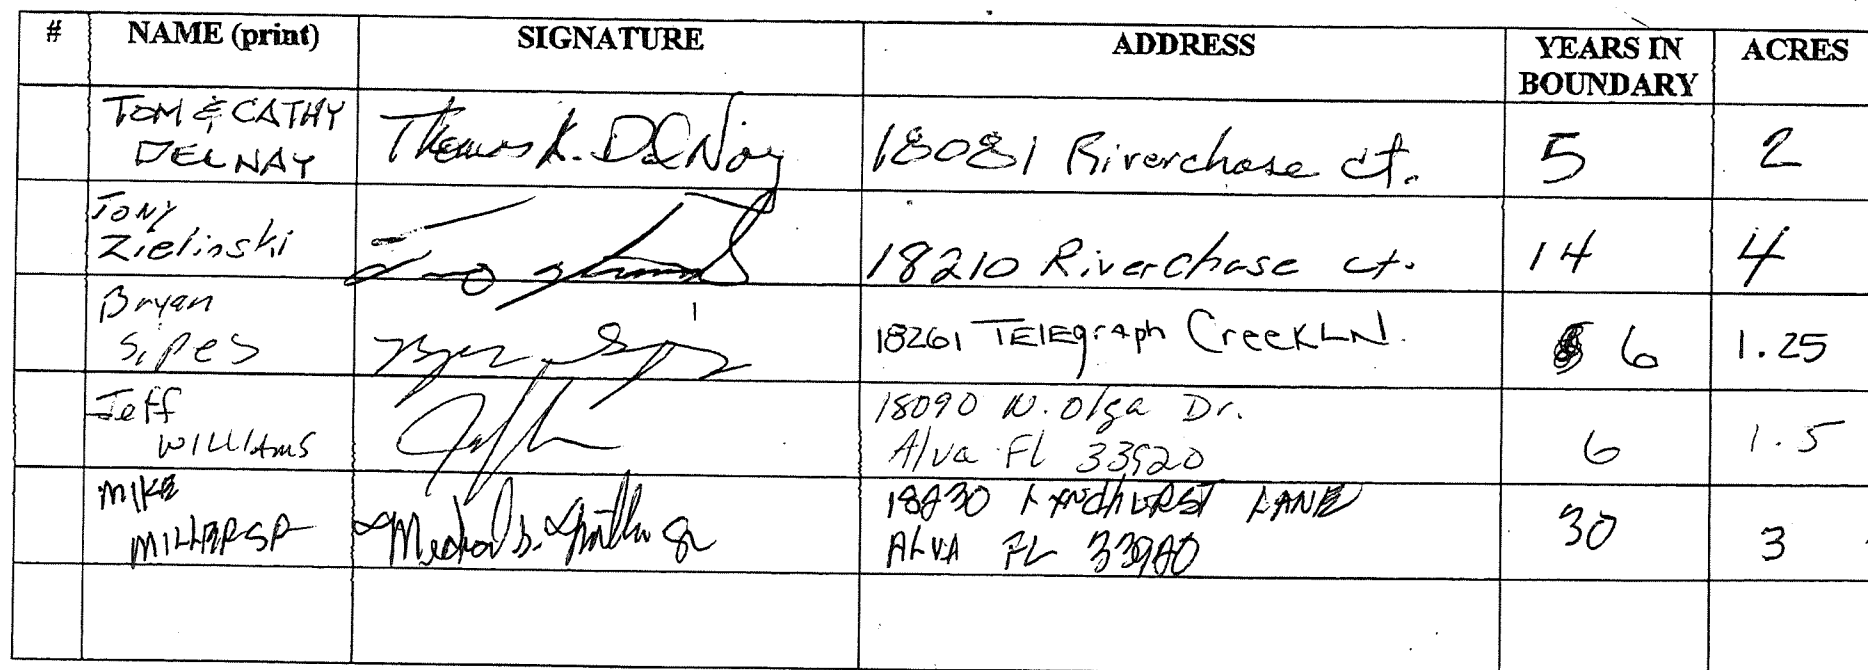 # NAME (print) SIGNATURE ADDRESS YEARS IN BOUNDARY ACRES
TOM & CATHY
DELNAY Thomas K. DelNay 18081 Riverchase ct. 5 2
TONY
Zielinski 18210 Riverchase ct. 14 4
Bryan
Sipes 18261 TELEgraph CreekLN. 6 1.25
Jeff
WILLIAMS 18090 N. Olga Dr.
Alva Fl 33920 6 1.5
MIKE
MILLER SR 18230 LYNDHURST LANE
ALVA FL 33920 30 3